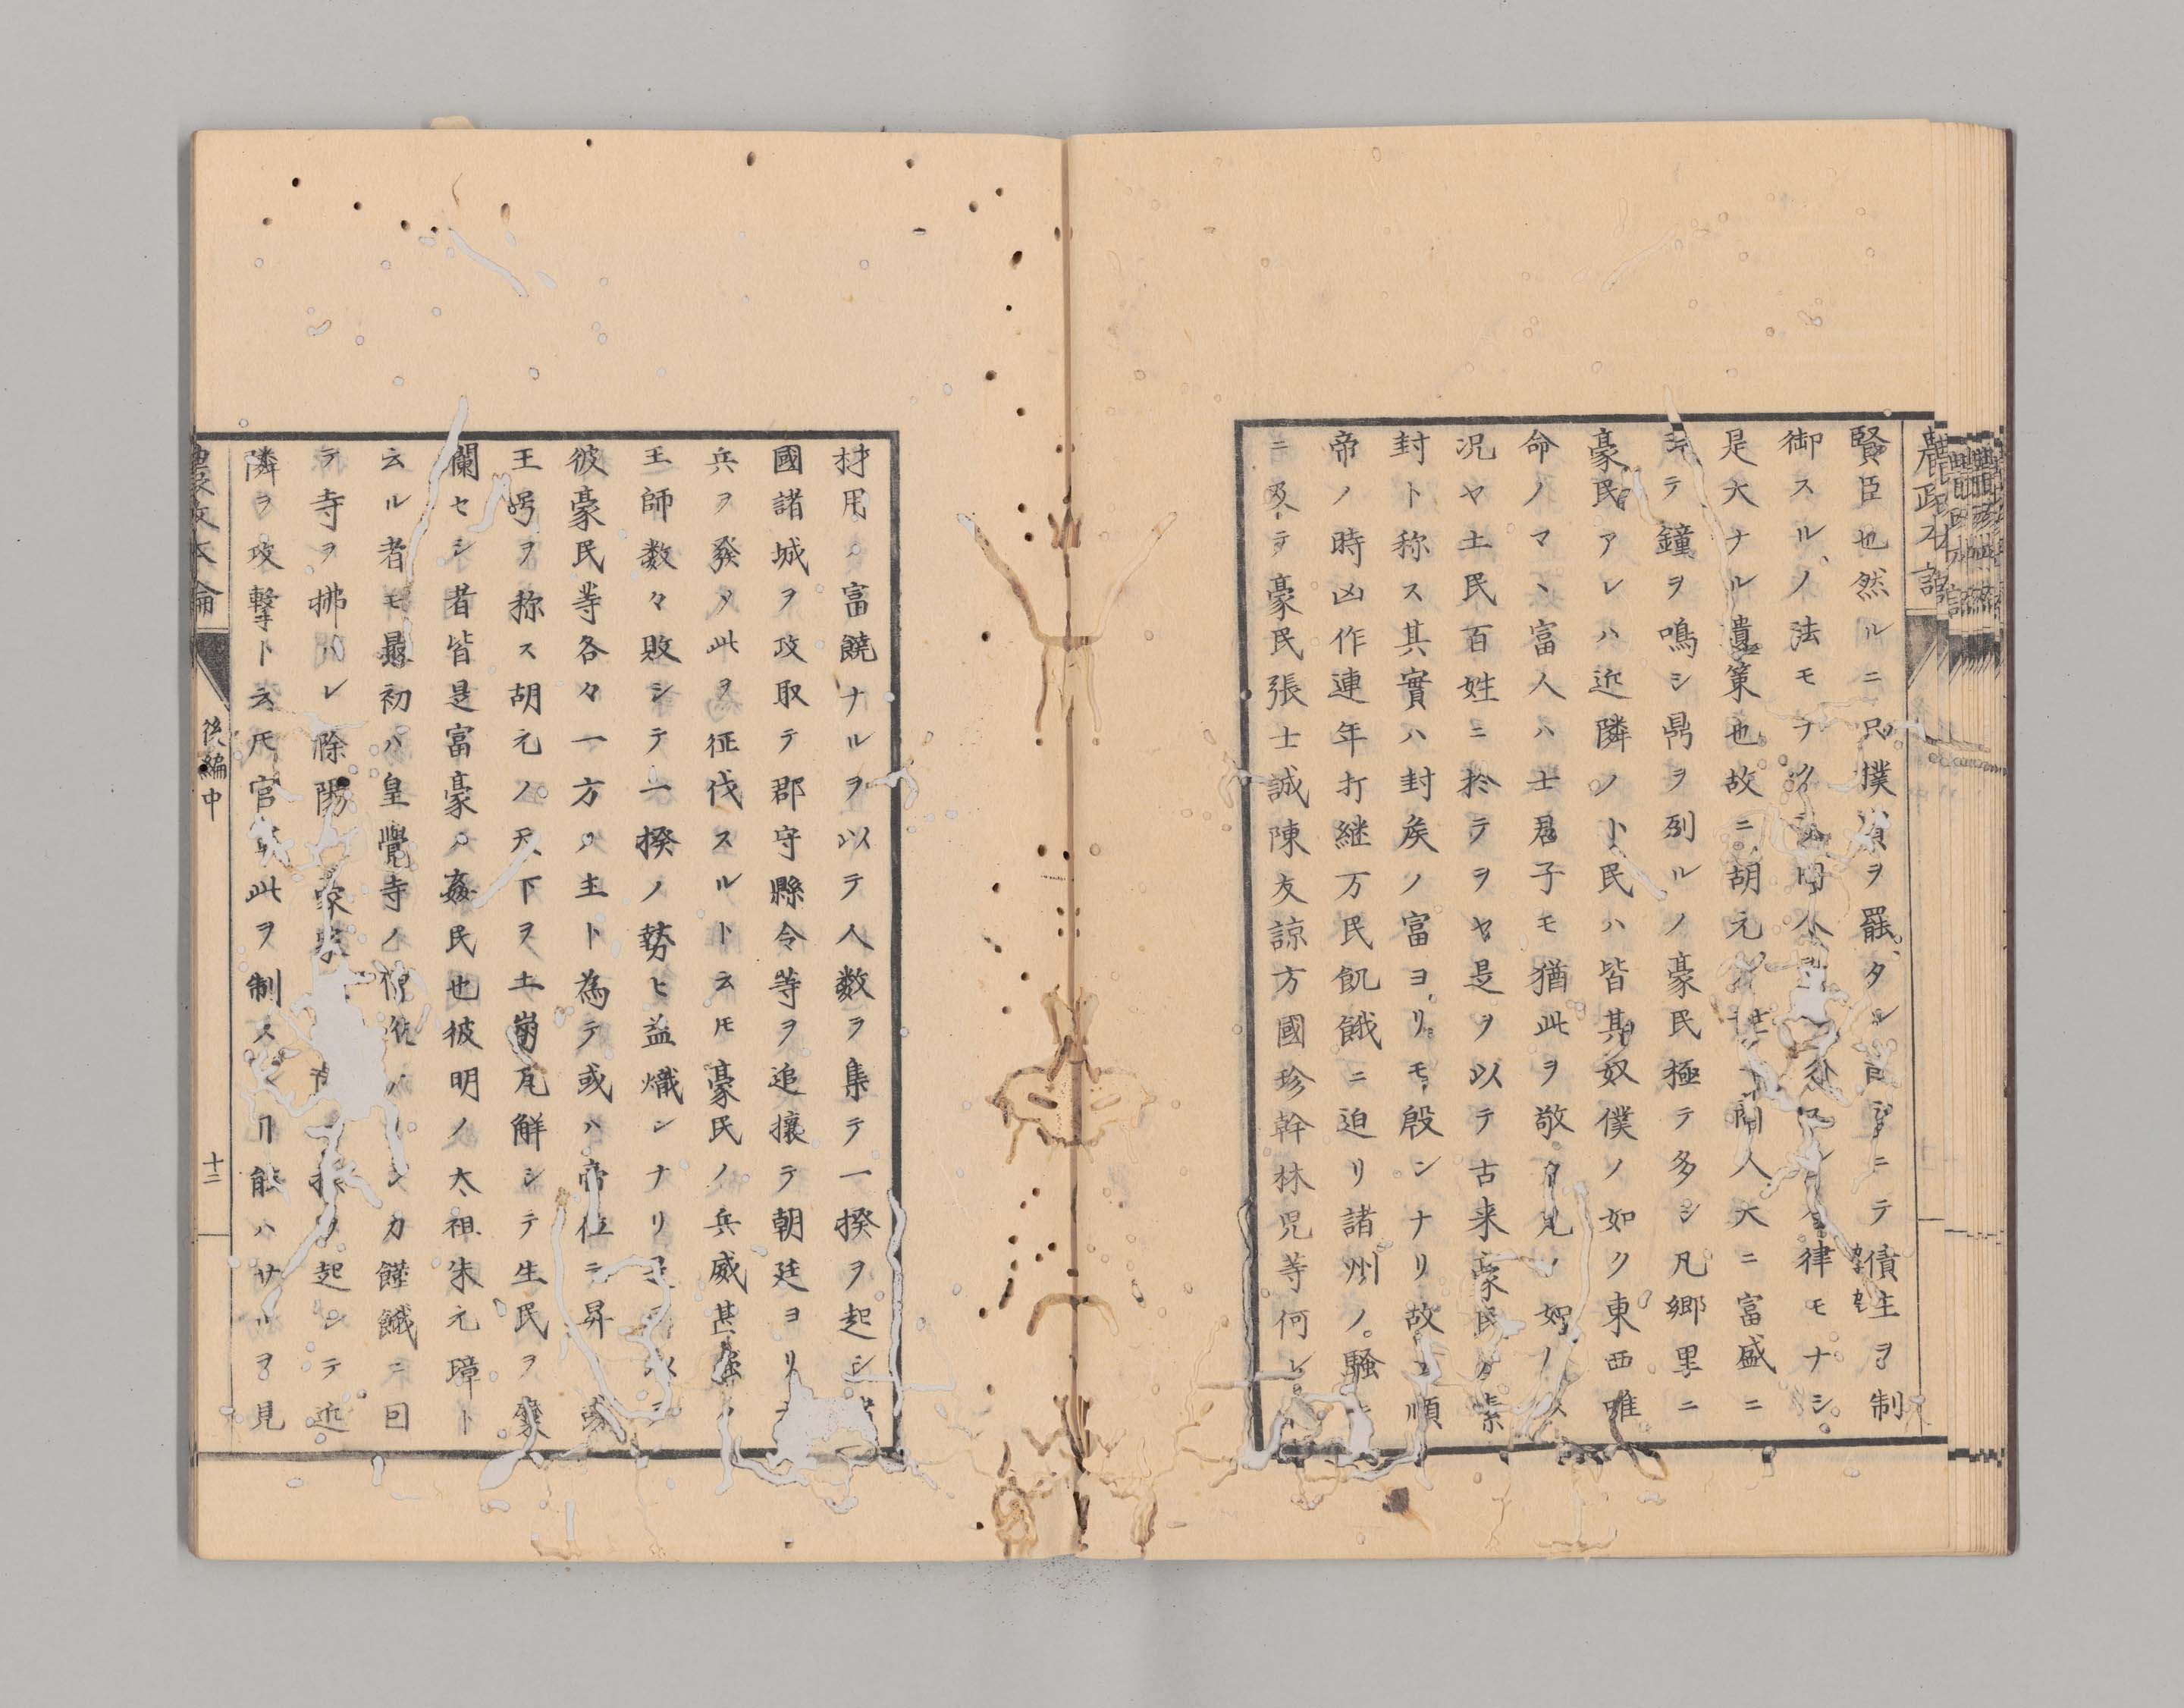 農政本論
賢臣也然ルニ只撲須ヲ罷タルニテ債主ヲ制
御スルノ法モナク律モナシ
是大ナル遺策也故ニ胡元人大ニ富盛ニ
シテ鐘ヲ鳴シ鼎ヲ列ルノ豪民極テ多シ凡郷里ニ
豪民アレハ近隣ノ小民ハ皆其奴僕ノ如ク東西唯
命ノマヽ富人ハ士君子モ猶此ヲ敬
况ヤ土民百姓ニ於テヲヤ是ヲ以テ古来豪民ヲ素
封ト称ス其實ハ封矦ノ富ヨリモ殷ンナリ故ニ順
帝ノ時凶作連年打継万民飢餓ニ迫リ諸州ノ騒
ニ及テ豪民張士誠陳友諒方國珍幹林児等何レ
材用富饒ナルヲ以テ人数ヲ集テ一揆ヲ起シ
國諸城ヲ攻取テ郡守縣令等ヲ追攘テ朝廷ヨリ
兵ヲ發メ此ヲ征伐スルト云ドモ豪民ノ兵威甚強
王師数々敗シテ一揆ノ勢ヒ益熾ンナリ
彼豪民等各々一方ノ主ト為テ或ハ帝位ニ昇
王号ヲ称ス胡元ノ天下ヲ土崩瓦解シテ生民ヲ糜
爛セシ者皆是富豪ノ姦民也彼明ノ太祖朱元璋ト
云ル者モ最初ハ皇覺寺ノ僧ナリシカ饉饑ニ因
テ寺ヲ拂ハレ滁陽起シテ近
隣ヲ攻撃ト云ドモ官此ヲ制スル能ハサルヲ見
農政本論
後編中
十三